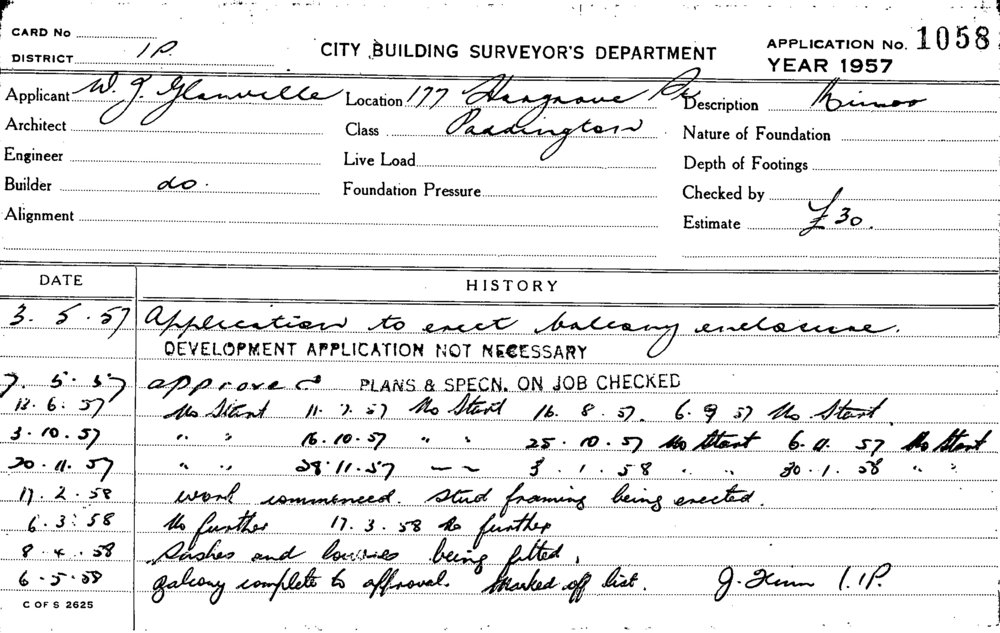 CARD No
DISTRICT 1P.
CITY BUILDING SURVEYOR'S DEPARTMENT
APPLICATION No. 1058
YEAR 1957
Applicant W. J. Glanville Location 177 Hargrave Pk Description Minor
Architect Class Paddington Nature of Foundation
Engineer Live Load Depth of Footings
Builder do. Foundation Pressure Checked by
Alignment Estimate £30.
DATE HISTORY
3. 5. 57 Application to erect balcony enclosure.
DEVELOPMENT APPLICATION NOT NECESSARY
7. 5. 57 approved PLANS & SPECN. ON JOB CHECKED
13. 6. 57 No Start 11. 7. 57 No Start 16. 8. 57. 6. 9 57 No Start
3. 10. 57 " " 16. 10. 57 " " 25. 10. 57 No Start 6. 11. 57 No Start
20. 11. 57 " " 28. 11. 57 — — 3. 1. 58 " " 30. 1. 58 " "
17. 2. 58 work commenced. Stud framing being erected.
6. 3. 58 No further 17. 3. 58 No further
8. 4. 58 Sashes and louvres being fitted.
6. 5. 58 Balcony complete to approval. Marked off list. J. 1.1P.
C OF S 2625